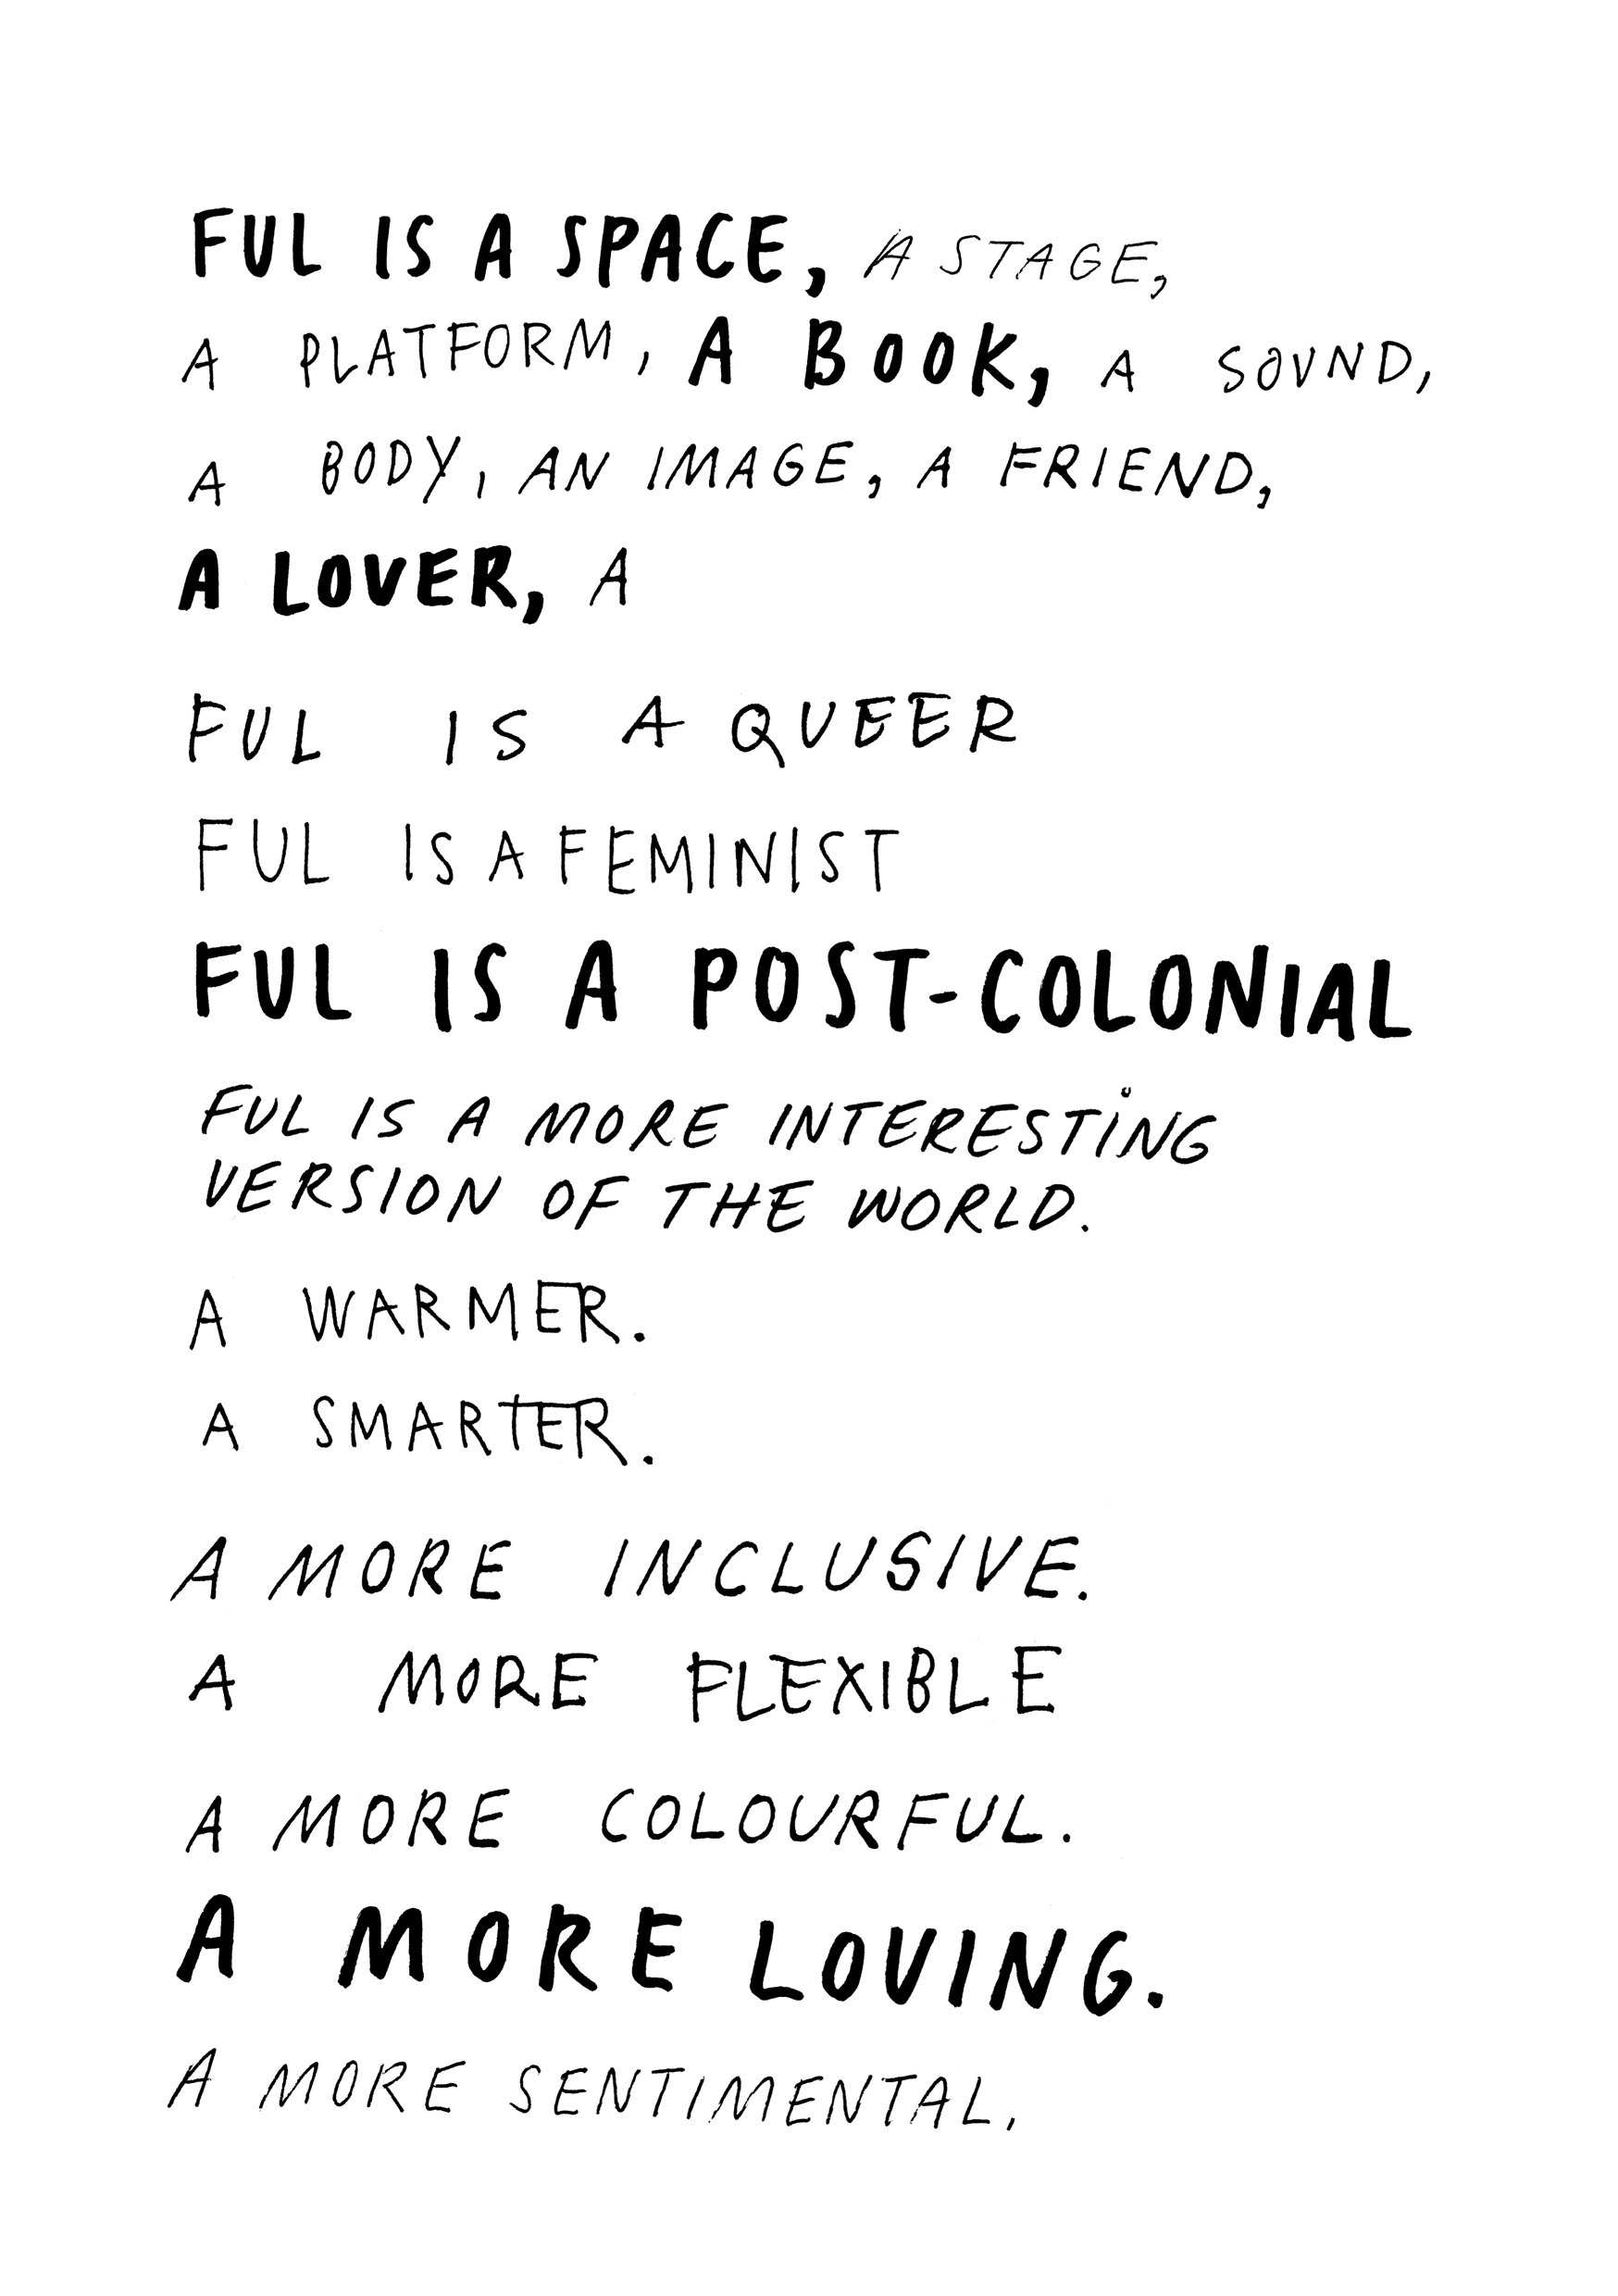 FUL IS A SPACE, A STAGE,
A PLATFORM, A BOOK, A SOUND,
A BODY, AN IMAGE, A FRIEND,
A LOVER, A
FUL IS A QUEER
FUL IS A FEMINIST
FUL IS A POST-COLONIAL
FUL IS A MORE INTERESTING
VERSION OF THE WORLD.
A WARMER.
A SMARTER.
A MORE INCLUSIVE.
A MORE FLEXIBLE
A MORE COLOURFUL.
A MORE LOVING.
A MORE SENTIMENTAL,